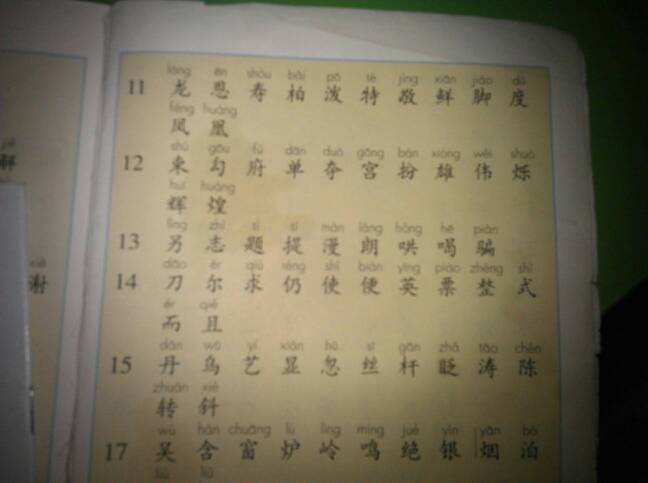 lóng ēn shòu bǎi pō tè jìng xiān jiǎo dù
11 龙 恩 寿 柏 泼 特 敬 鲜 脚 度
fèng huáng
凤 凰
shù gōu fǔ dān duó gōng bàn xióng wěi shuò
12 束 勾 府 单 夺 宫 扮 雄 伟 烁
huī huáng
辉 煌
lìng zhì tí tí màn lǎng hǒng hē piàn
13 另 志 题 提 漫 朗 哄 喝 骗
dāo ěr qiú réng shǐ biàn yīng piào zhěng shì
14 刀 尔 求 仍 使 便 英 票 整 式
ér qiě
而 且
dān wū yì xiǎn hū sī gān zhǎ tāo chén
15 丹 乌 艺 显 忽 丝 杆 眨 涛 陈
zhuǎn xié
转 斜
wú hán chuāng lú lǐng míng jué yín yān bó
17 吴 含 窗 炉 岭 鸣 绝 银 烟 泊
liú liǔ
解
谢